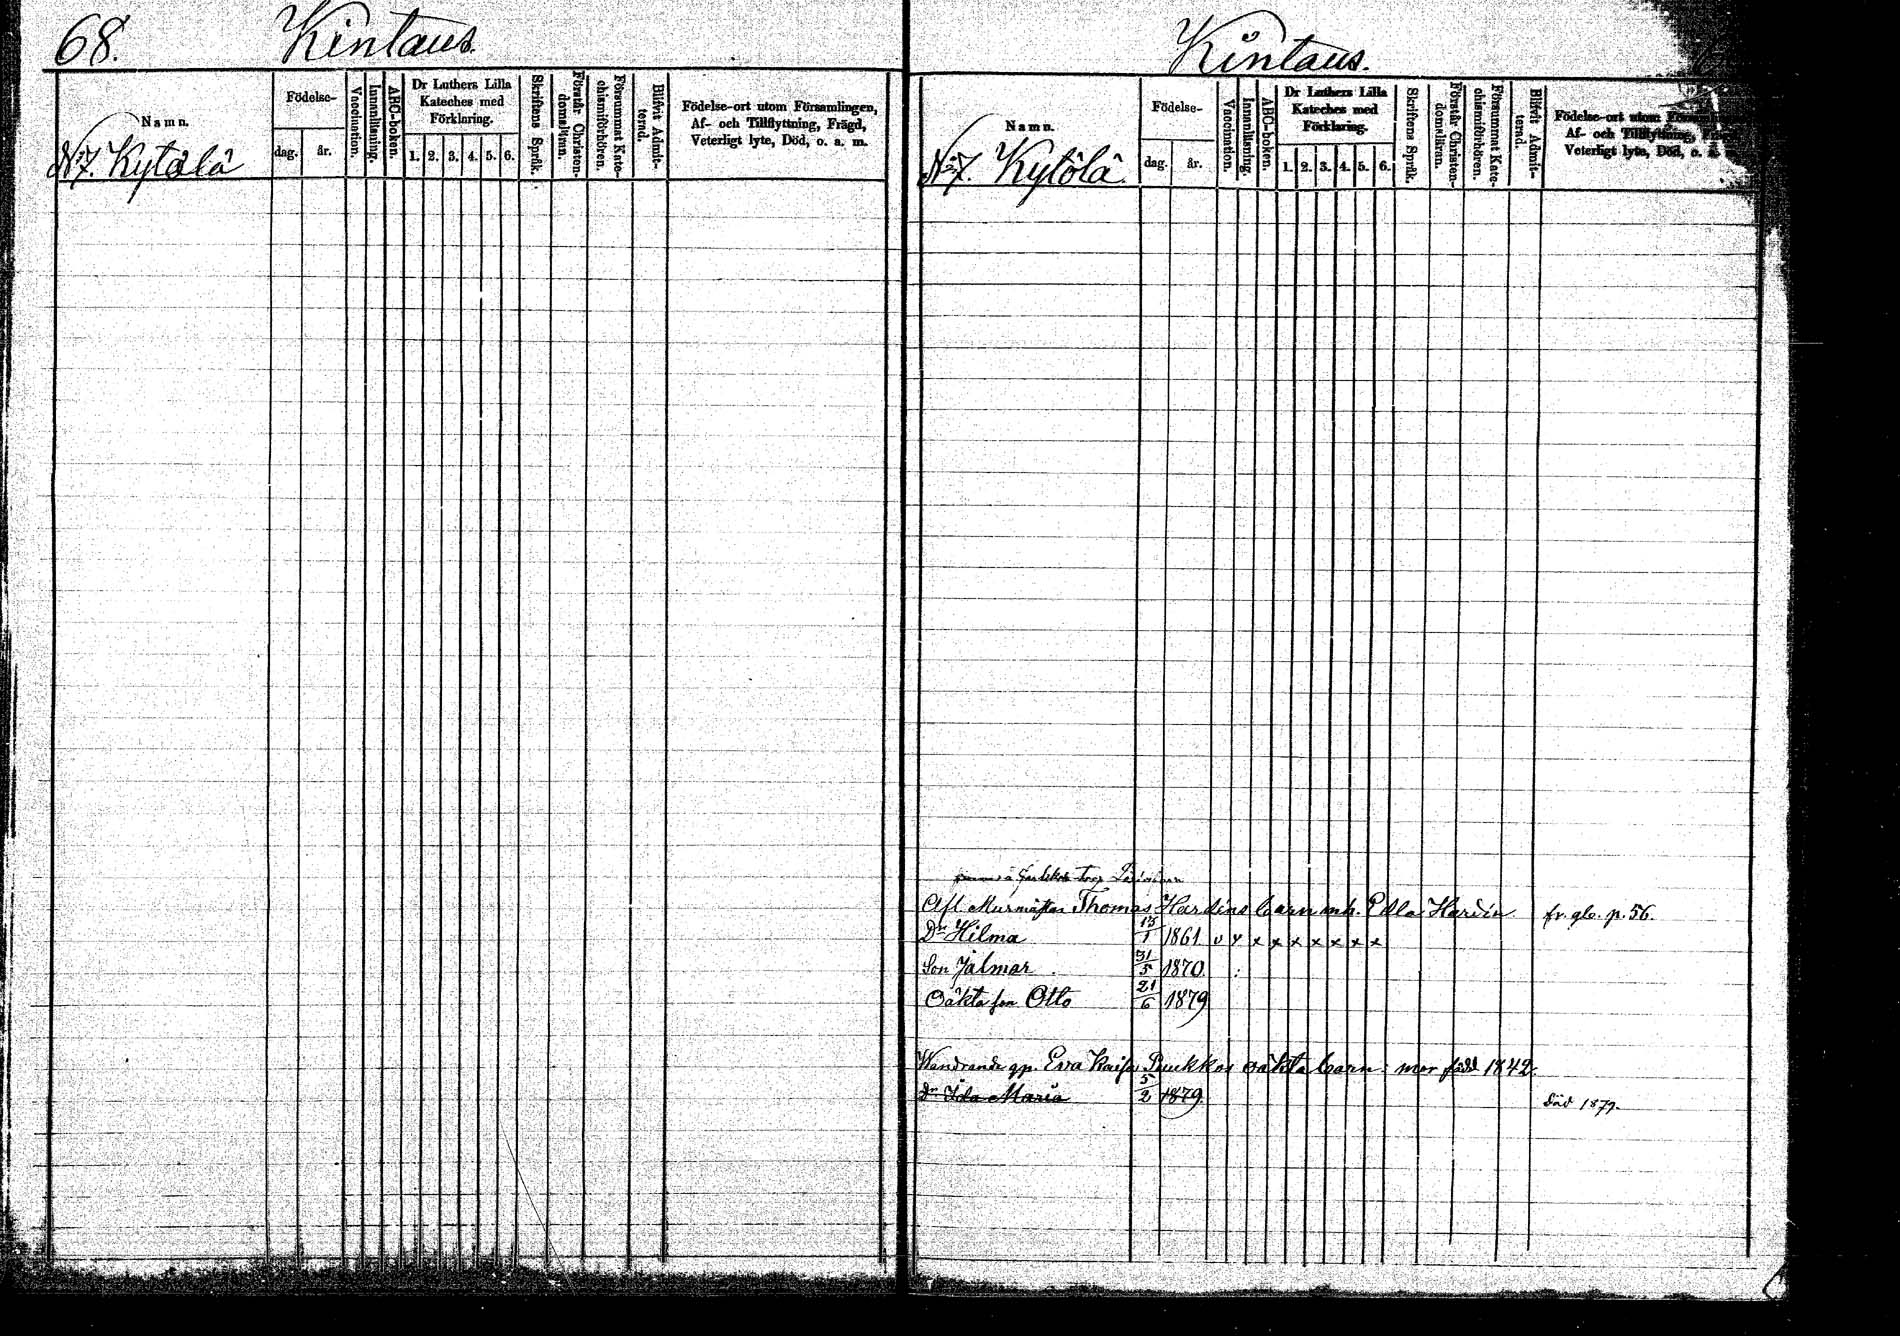 68. Kintaus.
Namn.
Födelse-
dag. år.
Vaccination.
Innanläsning.
ABC-boken.
Dr Luthers Lilla
Kateches med
Förklaring.
1. 2. 3. 4. 5. 6.
Skriftens Språk.
Förstår Christen-
domsläran.
Försummat Kate-
chismiförhören.
Blifvit Admit-
terad.
Födelse-ort utom Församlingen,
Af- och Tillflyttning, Frägd,
Veterligt lyte, Död, o. a. m.
N:7. Kytölä
Kintaus.
Namn.
Födelse-
dag. år.
Vaccination.
Innanläsning.
ABC-boken.
Dr Luthers Lilla
Kateches med
Förklaring.
1. 2. 3. 4. 5. 6.
Skriftens Språk.
Förstår Christen-
domsläran.
Försummat Kate-
chismiförhören.
Blifvit Admit-
terad.
Födelse-ort utom
Af- och Tillflyttning,
Veterligt lyte, Död, o. a.
N:7. Kytölä.
Afl. Murmästar Thomas Hardins barn mh. Edla Hardin fr. glb. p. 56.
Dr Hilma 13/1 1861 v v x x x x x x x
Son Jalmar 31/5 1870
Oäkta son Otto 21/6 1879
Wandrande qp. Eva Kaisa Puukkos oäkta barn: mor född 1842.
Dr Ida Maria 5/2 1879 död 1879.